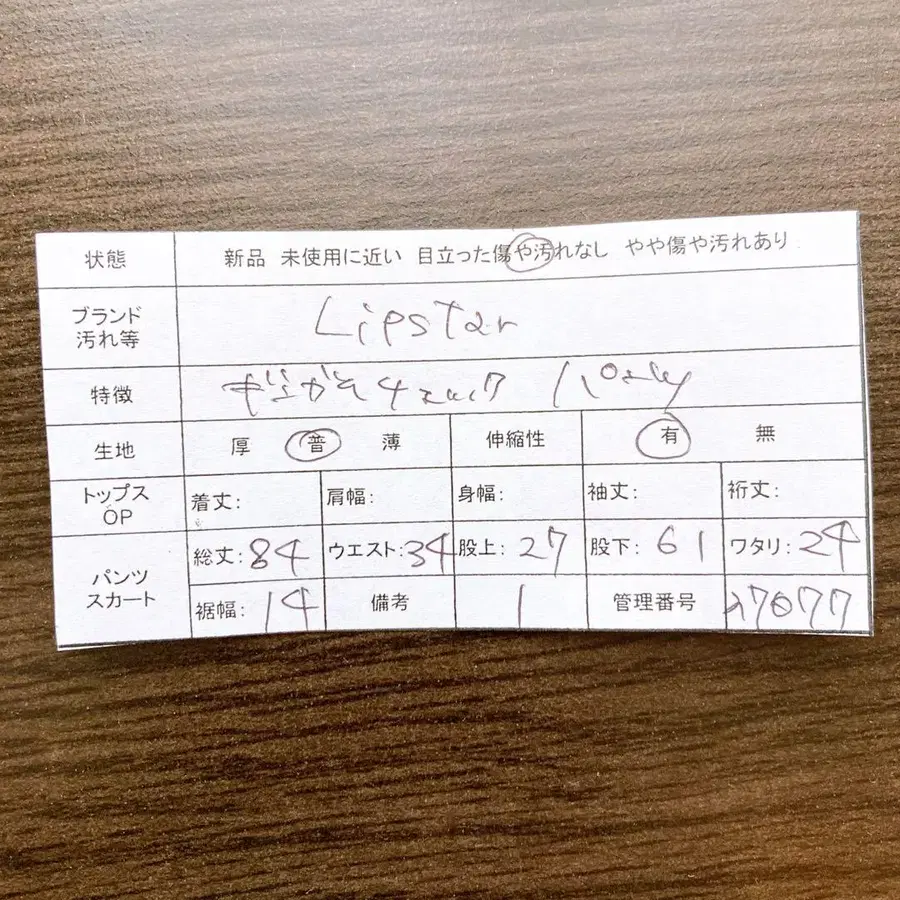 状態 新品 未使用に近い 目立った傷や汚れなし やや傷や汚れあり
ブランド
汚れ等 Lipstar
特徴 チェック
生地 厚 普 薄 伸縮性 有 無
トップス
OP 着丈: 肩幅: 身幅: 袖丈: 裄丈:
パンツ
スカート 総丈:84 ウエスト:34 股上:27 股下:61 ワタリ:24
裾幅:14 備考 1 管理番号 27077